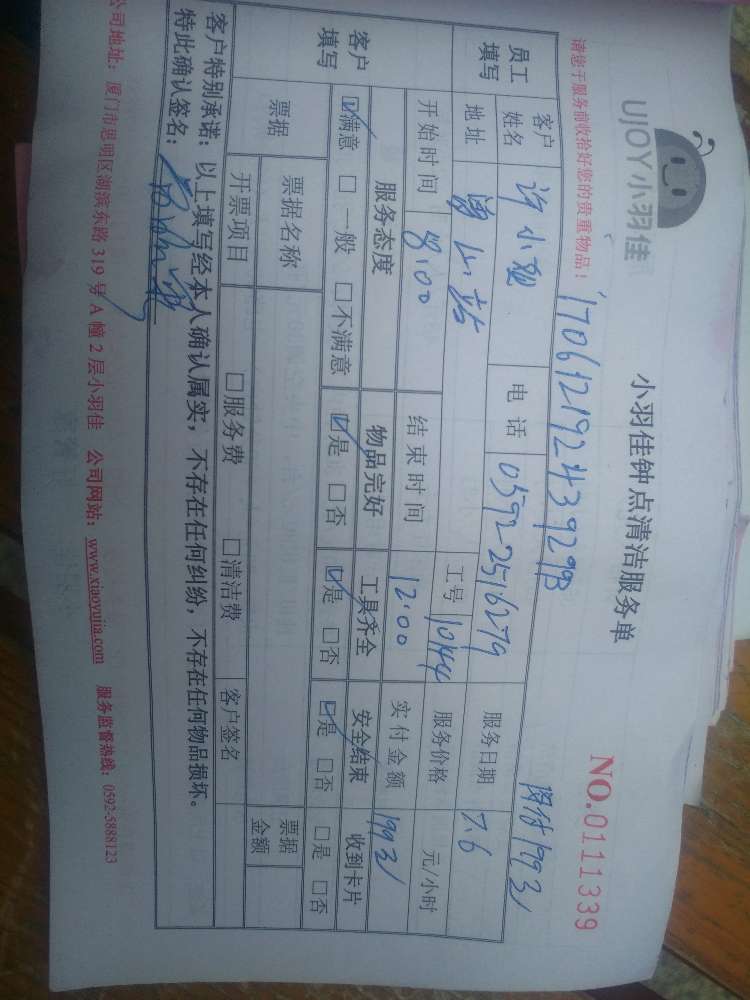 UJOY小羽佳
小羽佳钟点清洁服务单
NO.0111339
请您于服务前收拾好您的贵重物品！
170612192439299B
网付1993/
员工填写
客户姓名 许小姐 电话 0592 2516279 服务日期 7.6
地址 工号 10144 服务价格 元/小时
开始时间 8:00 结束时间 12:00 实付金额 1993/
客户填写
服务态度 物品完好 工具齐全 安全结束 收到卡片
☑满意 □一般 □不满意 ☑是 □否 ☑是 □否 ☑是 □否 □是 □否
票据 票据名称 票据金额
开票项目 □服务费 □清洁费 客户签名
客户特别承诺：以上填写经本人确认属实，不存在任何纠纷，不存在任何物品损坏。
特此确认签名：
公司地址：厦门市思明区湖滨东路319号A幢2层小羽佳 公司网站：www.xiaoyujia.com 服务监督热线：0592-5888123